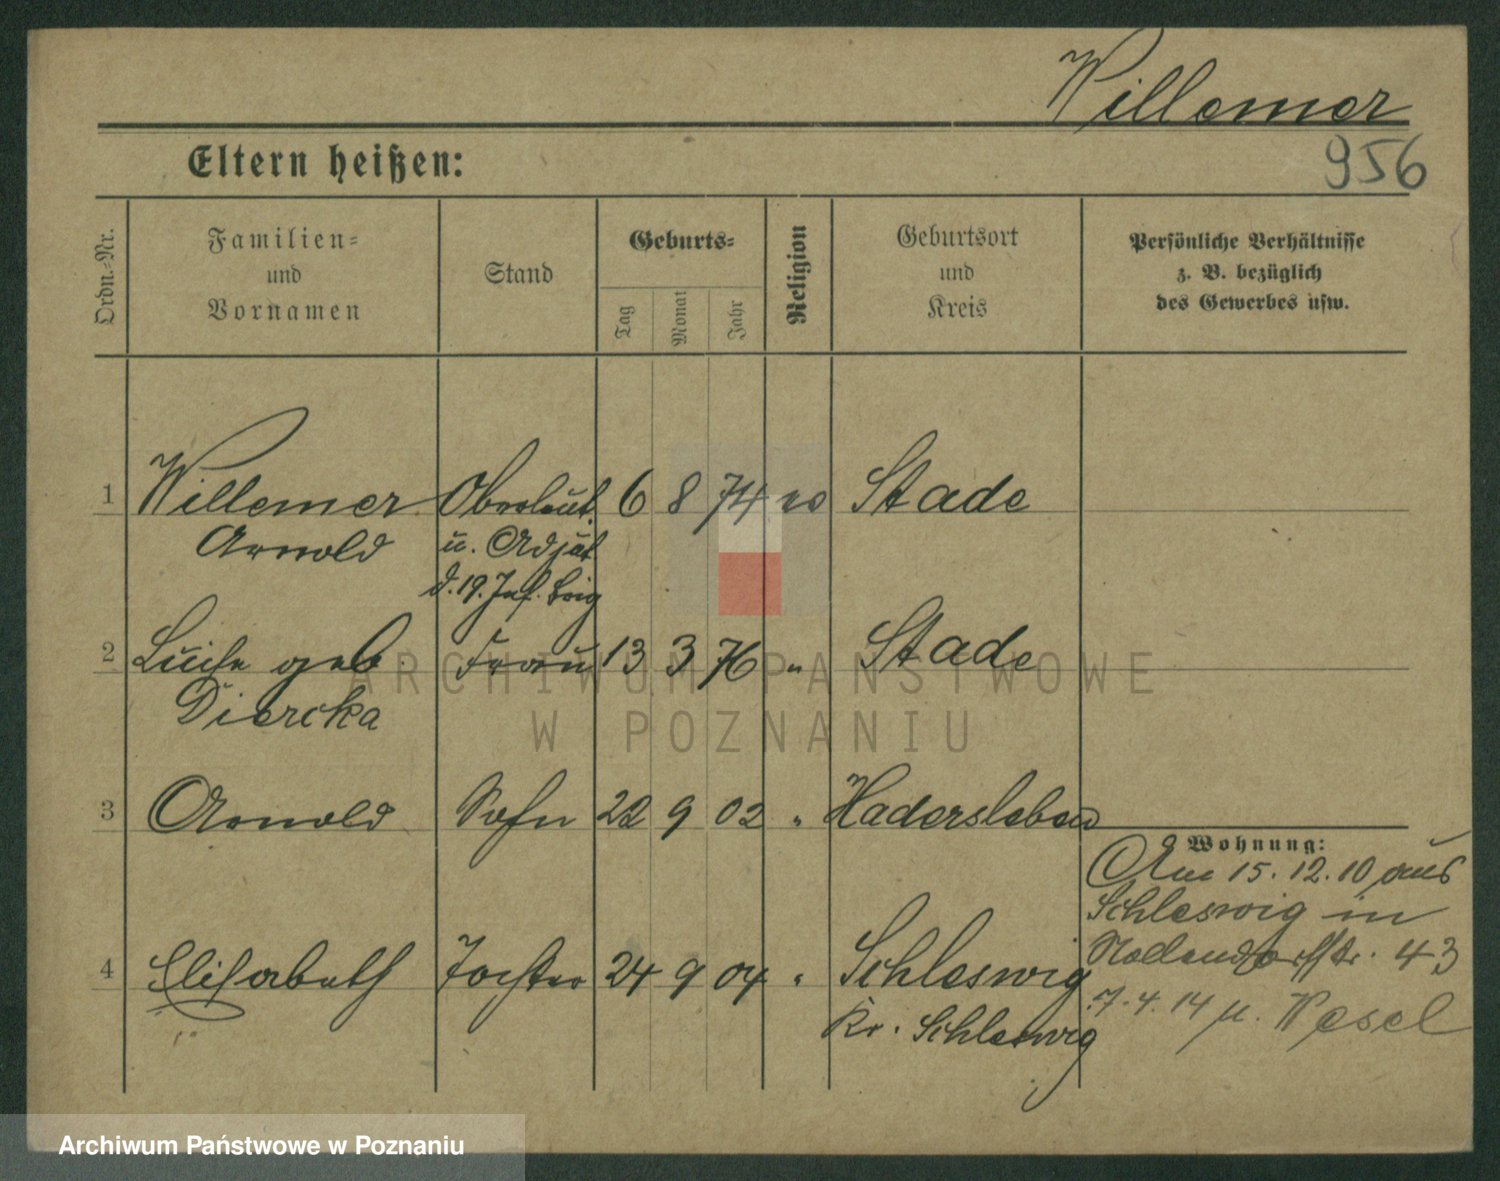 Willemer
956
Eltern heißen:
Ordn.-Nr.
Familien-
und
Vornamen
Stand
Geburts-
Tag
Monat
Jahr
Religion
Geburtsort
und
Kreis
Persönliche Verhältnisse
z. B. bezüglich
des Gewerbes usw.
1 Willemer Oberleut. 6 8 74 ev Stade
Arnold u. Adjut.
d. 19. Inf. Brig
2 Luise geb. Frau 13 3 76 " Stade
Diercka
3 Arnold Sohn 22 9 02 " Hadersleben
Wohnung:
Am 15.12.10 aus
Schleswig in
43
4 Elisabeth Tochter 24 9 04 " Schleswig
Kr. Schleswig
7.4.14 n. Wesel
ARCHIWUM PAŃSTWOWE
W POZNANIU
Archiwum Państwowe w Poznaniu